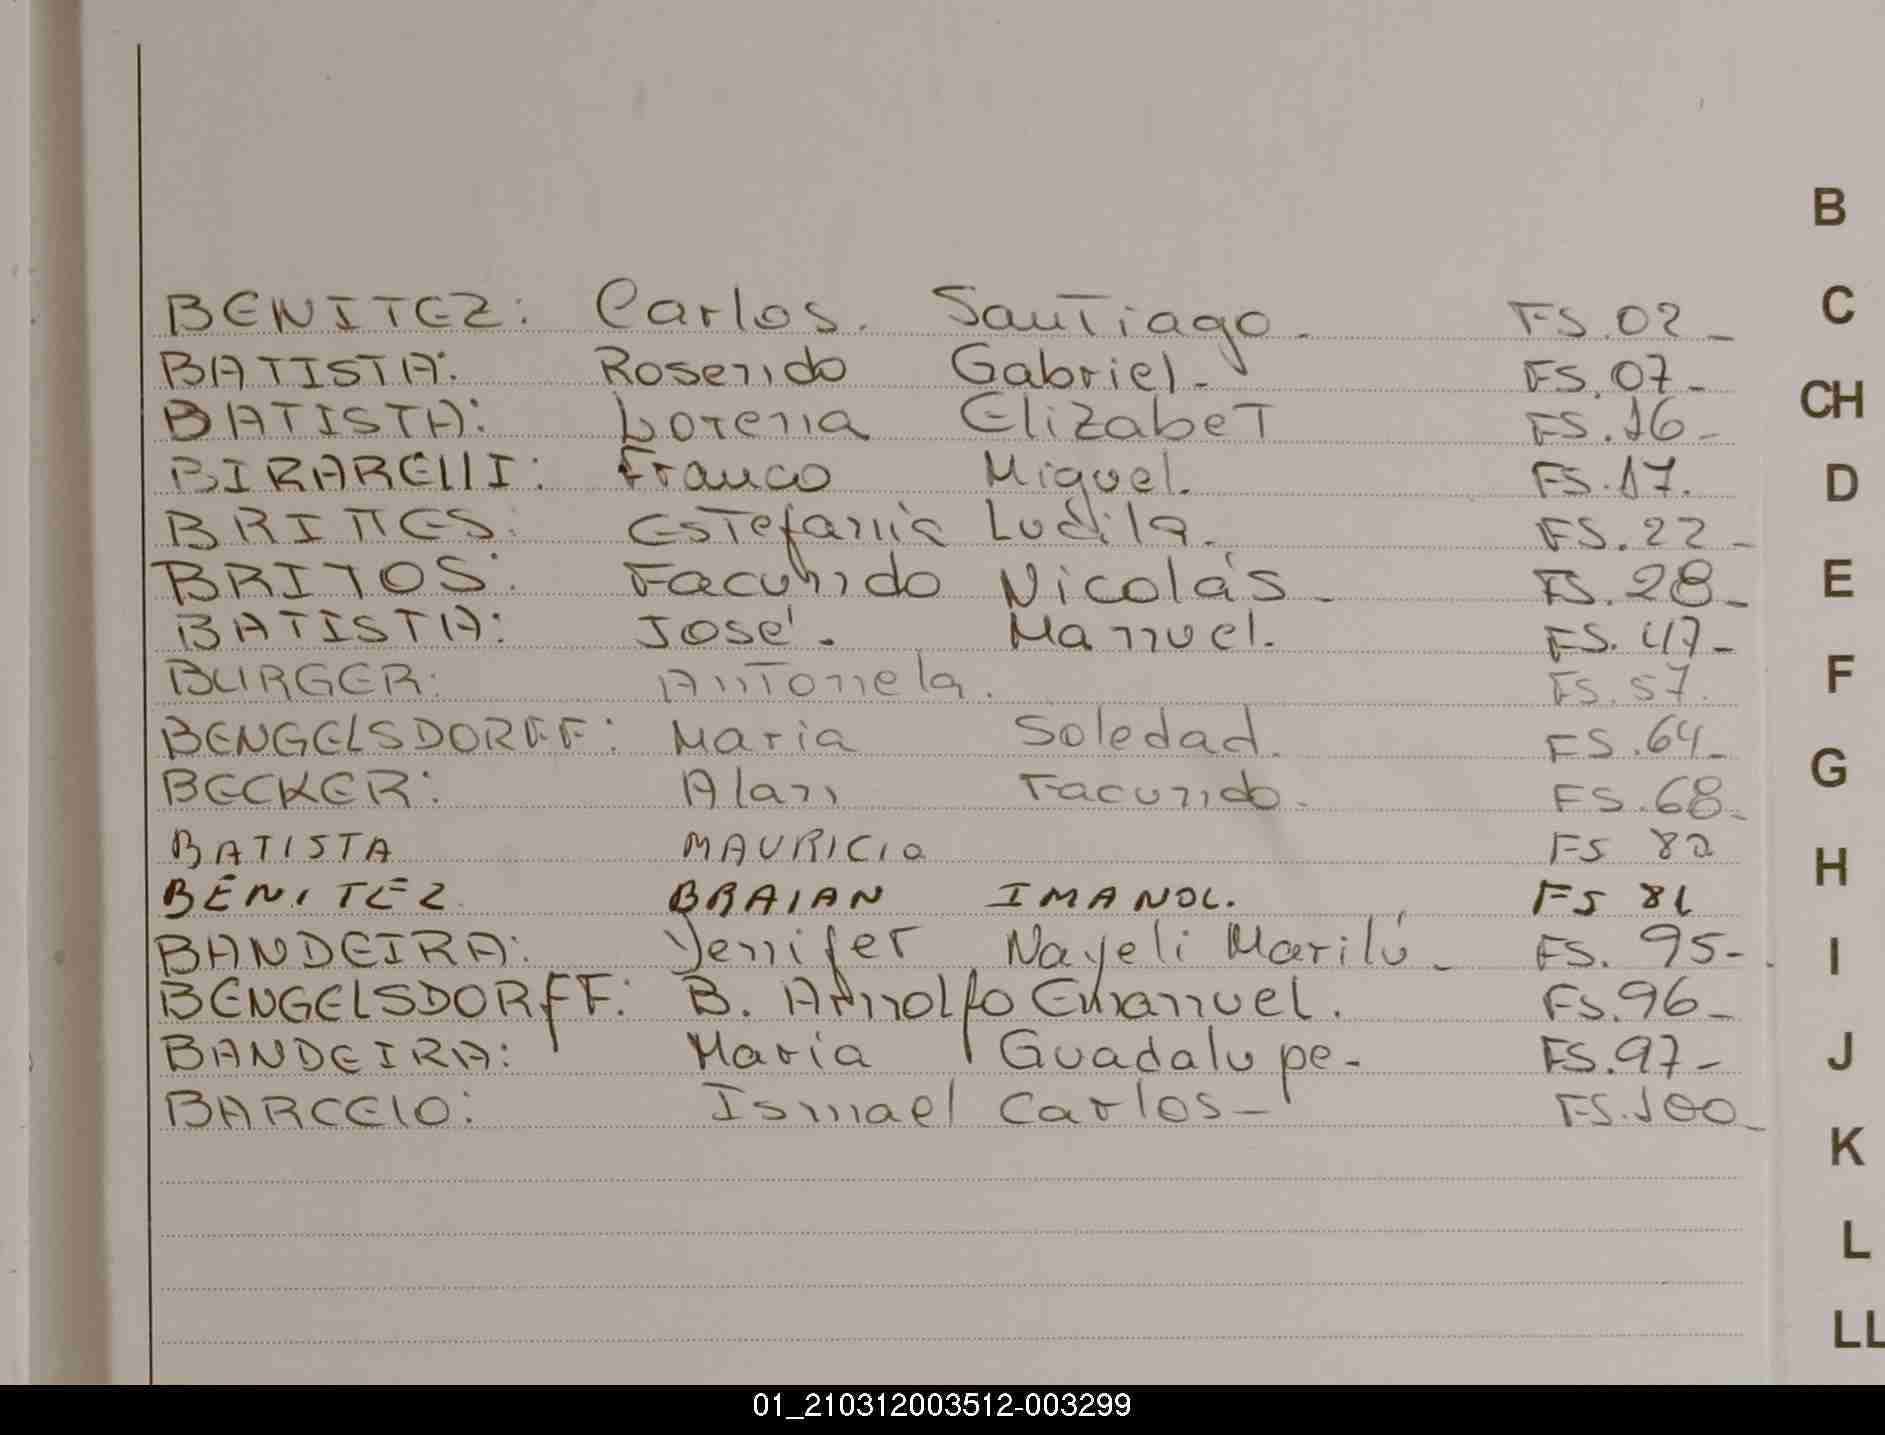 B
BENITEZ: Carlos. Santiago. FS.02_
C
BATISTA: Rosendo Gabriel. FS.07_
CH
BATISTA: Lorena Elizabet FS.16_
BIRARELLI: Franco Miguel. FS.17.
D
BRITTES: Estefania Ludila. FS.22_
BRITOS: Facundo Nicolás_ FS.28_
E
BATISTA: José. Manuel. FS.47_
BURGER: Antonela. FS.57.
F
BENGELSDORFF: Maria Soledad. FS.64_
G
BECKER: Alan Facundo. FS.68_
BATISTA MAURICIO FS 82
H
BENITEZ BRAIAN IMANOL. FS
BANDEIRA: Yennifer Nayeli Marilú_ FS. 95-.
I
BENGELSDORFF: B. Arnolfo Emanuel. FS.96_
BANDEIRA: Maria Guadalupe- FS.97-
J
BARCELO: Ismael Carlos- FS.100_
K
L
LL
01_210312003512-003299